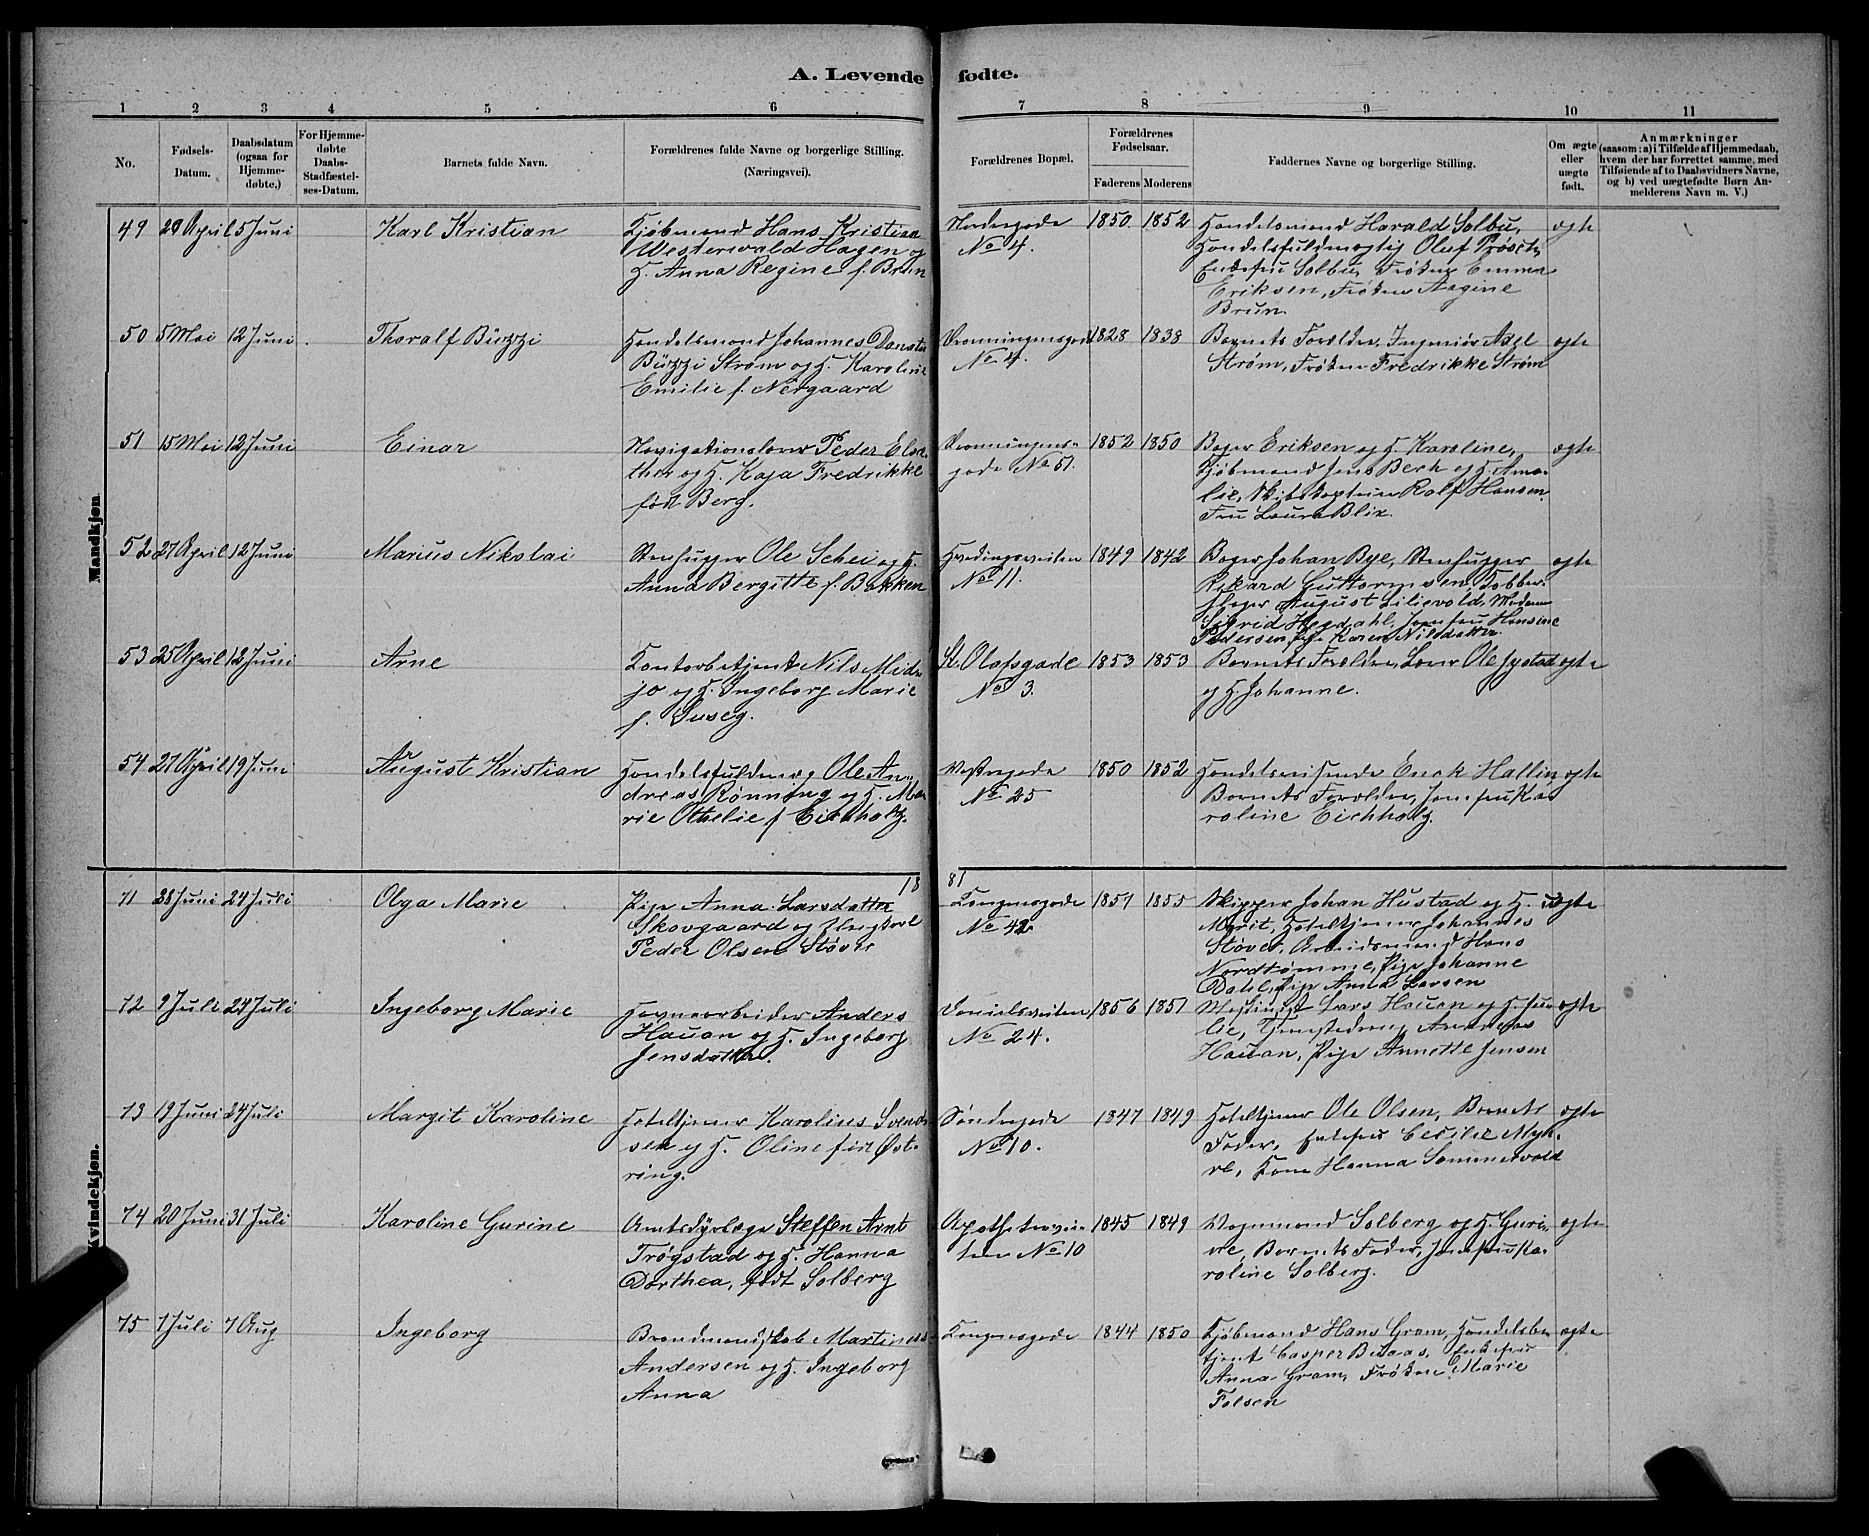 A. Levende fødte.
1 2 3 4 5 6 7 8 9 10 11
No.
Fødsels-
Datum.
Daabsdatum
(ogsaa for
Hjemme-
døbte.)
For Hjemme-
døbte
Daabs-
Stadfæstel-
ses-Datum.
Barnets fulde Navn.
Forældrenes fulde Navne og borgerlige Stilling.
(Næringsvei).
Forældrenes Bopæl.
Forældrenes
Fødselsaar.
Faderens Moderens
Faddernes Navne og borgerlige Stilling.
Om ægte
eller
uægte
født.
Anmærkninger
(saasom: a) i Tilfælde af Hjemmedaab,
hvem der har forrettet samme, med
Tilføiende af to Daabsvidners Navne,
og b) ved uægtefødte Børn An-
melderens Navn m. V.)
Mandkjøn.
49 29 April 5 Juni
Karl Kristian
Kjøbmand Hans Kristian
Westerwald Hagen og
H. Anna Regine f. Brun
Nordregade
No 4.
1850. 1852
Handelsmand Harald Solbu,
Handelsfuldmægtig Oluf Prøsch,
Enkefru Solbu, Frøken Emma
Eriksen, Frøken Aagine
Brun.
ægte
50 5 Mai 12 Juni
Thoralf Büzzi
Handelsmand Johannes
Büzzi Strøm og H. Karoline
Emilie f. Nergaard
Dronningensgade
No 4.
1828 1838
Barnets Foreldre, Ingeniør Axel
Strøm, Frøken Fredrikke Strøm
ægte
51 15 Mai 12 Juni
Einar
Navigationslærer Peder Else-
ther og H. Kaja Fredrikke
født Berg.
Dronningens-
gade No 51.
1852 1850
Bager Eriksen og H. Karoline,
Kjøbmand Jens Bech og H. Ama-
lie, Skibskaptein Rolf Hansen,
Fru Laura Blix.
ægte
52 27 April 12 Juni
Marius Nikolai
Stenhugger Ole Schei og H.
Anna Bergitte f. Bakken
Hvedingsveiten
No 11.
1849 1842
Bager Johan Bye, Stenhugger
Rikard Guttormsen, Kobber-
slager August Lilievold, Madam
Sigrid Hegdahl, Jomfru Hansine
Pedersen, Pige Karen Nilsdatter.
ægte
53 25 April 12 Juni
Arne
Kontorbetjent Nils Mid-
jo og H. Ingeborg Marie
f. Suseg.
St. Olafsgade
No 3.
1853 1853
Barnets Foreldre, Lærer Ole
og H. Johanne.
ægte
54 27 April 19 Juni
August Kristian
Handelsfuldmæg Ole An-
dreas Rønning og H. Ma-
rie Othelie f. Eichholtz.
Vestregade
No 25
1850 1852
Handelsreisende Erick Hallin
Barnets Forældre, Jomfru Ka-
roline Eichholz.
ægte
1881
Kvindekjøn.
71 28 Juni 24 Juli
Olga Marie
Pige Anna Larsdatter
Skovgaard og Ungkarl
Peder Olsen Støver
Kongensgade
No 42
1857 1855
Skipper Johan Hustad og H.
Marit, Hotelkjener Johannes
Støver, Arbeidsmand Hans
Nordtømme, Pige Johanne
Dahl, Pige Anna Larsen
uægte
72 9 Juli 24 Juli
Ingeborg Marie
Havnearbeider Anders
Hauan og H. Ingeborg
Jensdatter.
Danielsveiten
No 24.
1856 1857
Maskinist Lars Hauan og H. Ju-
lie, Andreas
Hauan, Pige Annette Jensen
ægte
73 19 Juni 24 Juli
Margit Karoline
Hotelkjener Karolius Svend-
sen og H. Oline født Øst-
ring.
Søndregade
No 10.
1847 1849
Hotelkjener Ole Olsen, Barnets
Fader, Enkefru Cecilie Myh-
re, Kone Hanna Sommervold
ægte
74 20 Juni 31 Juli
Karoline Gurine
Amtsdyrlæge Steffen Arnt
Trøgstad og H. Hanna
Dorthea, født Solberg
Apothekervei-
ten No 10
1845 1849
Vognmand Solberg og H. Guri-
ne, Barnets Fader, Jomfru Ka-
roline Solberg.
ægte
75 1 Juli 7 Aug
Ingeborg
Brandmandskab Martinus
Andersen og H. Ingeborg
Anna
Kongensgade
1844 1850
Kjøbmand Hans Gram, Handelsbe-
tjent Casper Belaas, Enkefru
Anna Gram, Frøken Marie
Folsen
ægte